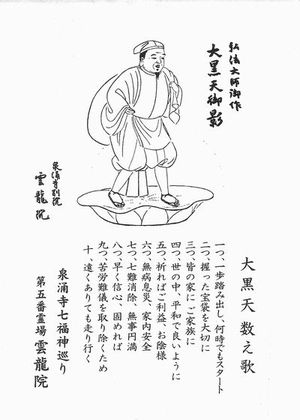 弘法大師御作
大黒天御影
泉涌寺別院
雲龍院
大黒天 数え歌
一つ、一歩踏み出し、何時でもスタート
二つ、握った宝袋を大切に
三つ、皆の家に ご家族に
四つ、世の中、平和で良いように
五つ、祈ればご利益、お陰様
六つ、無病息災、家内安全
七つ、七難消除、無事円満
八つ、早く信心、固めれば
九つ、苦労難儀を取り除くため
十、遠くありても走り行く
泉涌寺七福神巡り
第五番霊場 雲龍院